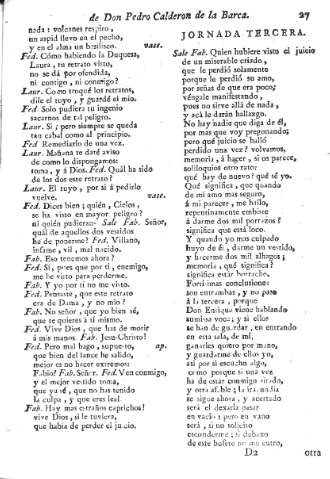 de Don Pedro Calderon de la Barca. 27
nada : volcanes respiro,
un aspid llevo en el pecho,
y en el alma un basilisco. vase.
Fed. Cómo habiendo la Duquesa,
Laura, tu retrato visto,
no se dá por ofendida,
ni contigo, ni conmigo?
Laur. Como troqué los retratos,
díle el tuyo, y guardé el mio.
Fed. Solo pudiera tu ingenio
sacarnos de tal peligro.
Laur. Sí; pero siempre se queda
tan cabal como al principio.
Fed. Remediarlo de una vez.
Laur. Mañana te daré aviso
de como lo dispongamos:
toma, y á Dios. Fed. Quál ha sido
de los dos este retrato?
Laur. El tuyo, por si á pedirlo
vuelve. vase.
Fed. Dices bien; quién, Cielos,
se ha visto en mayor peligro?
ni quién pudieran- Sale Fab. Señor,
quál de aquellos dos vestidos
he de ponerme? Fed. Villano,
infame, vil, mal nacido.
Fab. Eso tenemos ahora?
Fed. Sí, pues que por tí, enemigo,
me he visto para perderme.
Fab. Y yo por tí no me visto.
Fed. Pensaste, que este retrato
era de Dama, y no mio?
Fab. No señor, que yo bien sé,
que te quieres á tí mismo.
Fed. Vive Dios, que has de morir
á mis manos. Fab. Jesu-Christo!
Fed. Pero mal hago, supuesto, ap.
que bien del lance he salido,
mejor es no hacer extremos:
Fabio? Fab. Señor. Fed. Ven conmigo,
y el mejor vestido toma,
que ya sé, que no has tenido
la culpa, y que eres leal.
Fab. Hay mas extraños caprichos!
vive Dios, si le tuviera,
que habia de perder el juicio.
JORNADA TERCERA.
Sale Fab. Quien hubiere visto el juicio
de un miserable criado,
que le perdió solamente
porque le perdió su amo,
por señas de que era poco;
véngale manifestando,
pues no sirve allá de nada,
y acá le darán hallazgo.
No hay nadie que diga de él,
por mas que voy pregonando;
pero qué juicio se halló
perdido una vez? volvamos,
memoria, á hacer, si os parece,
soliloquios otro rato:
qué hay de nuevo? qué sé yo.
Qué significa, que quando
de mi amo mas seguro,
á mi parecer, me hallo,
repentinamente embiste
á darme dos mil porrazos?
significa que está loco.
Y quando yo mas culpado
huyo de él, darme un vestido,
y hacerme dos mil alhagos;
memoria, qué significa?
significa estár borracho.
Fortísimas conclusiones
son entrambas, y no paso
á la tercera, porque
Don Enrique viene hablando
en esta sala, de mí,
y guardarme de ellos yo,
así por si escucho algo,
como porque si una vez
ha de estár conmigo airado,
y otra afable; la
se sigue ahora, y acertado
será el dexarla pasar
en vacío: pero en vano
será, si no solicito
esconderme; si debaxo
de este bufete no me entro,
D2 otra